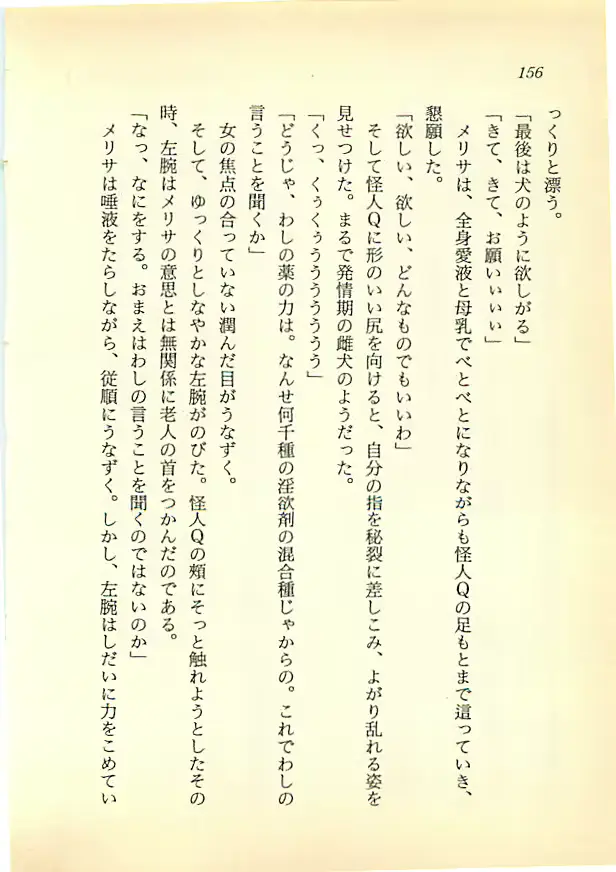 156
っくりと漂う。
「最後は犬のように欲しがる」
「きて、きて、お願いぃぃぃ」
メリサは、全身愛液と母乳でべとべとになりながらも怪人Qの足もとまで這っていき、
懇願した。
「欲しい、欲しい、どんなものでもいいわ」
そして怪人Qに形のいい尻を向けると、自分の指を秘裂に差しこみ、よがり乱れる姿を
見せつけた。まるで発情期の雌犬のようだった。
「くっ、くぅくぅうううううう」
「どうじゃ、わしの薬の力は。なんせ何千種の淫欲剤の混合種じゃからの。これでわしの
言うことを聞くか」
女の焦点の合っていない潤んだ目がうなずく。
そして、ゆっくりとしなやかな左腕がのびた。怪人Qの頬にそっと触れようとしたその
時、左腕はメリサの意思とは無関係に老人の首をつかんだのである。
「なっ、なにをする。おまえはわしの言うことを聞くのではないのか」
メリサは唾液をたらしながら、従順にうなずく。しかし、左腕はしだいに力をこめてい